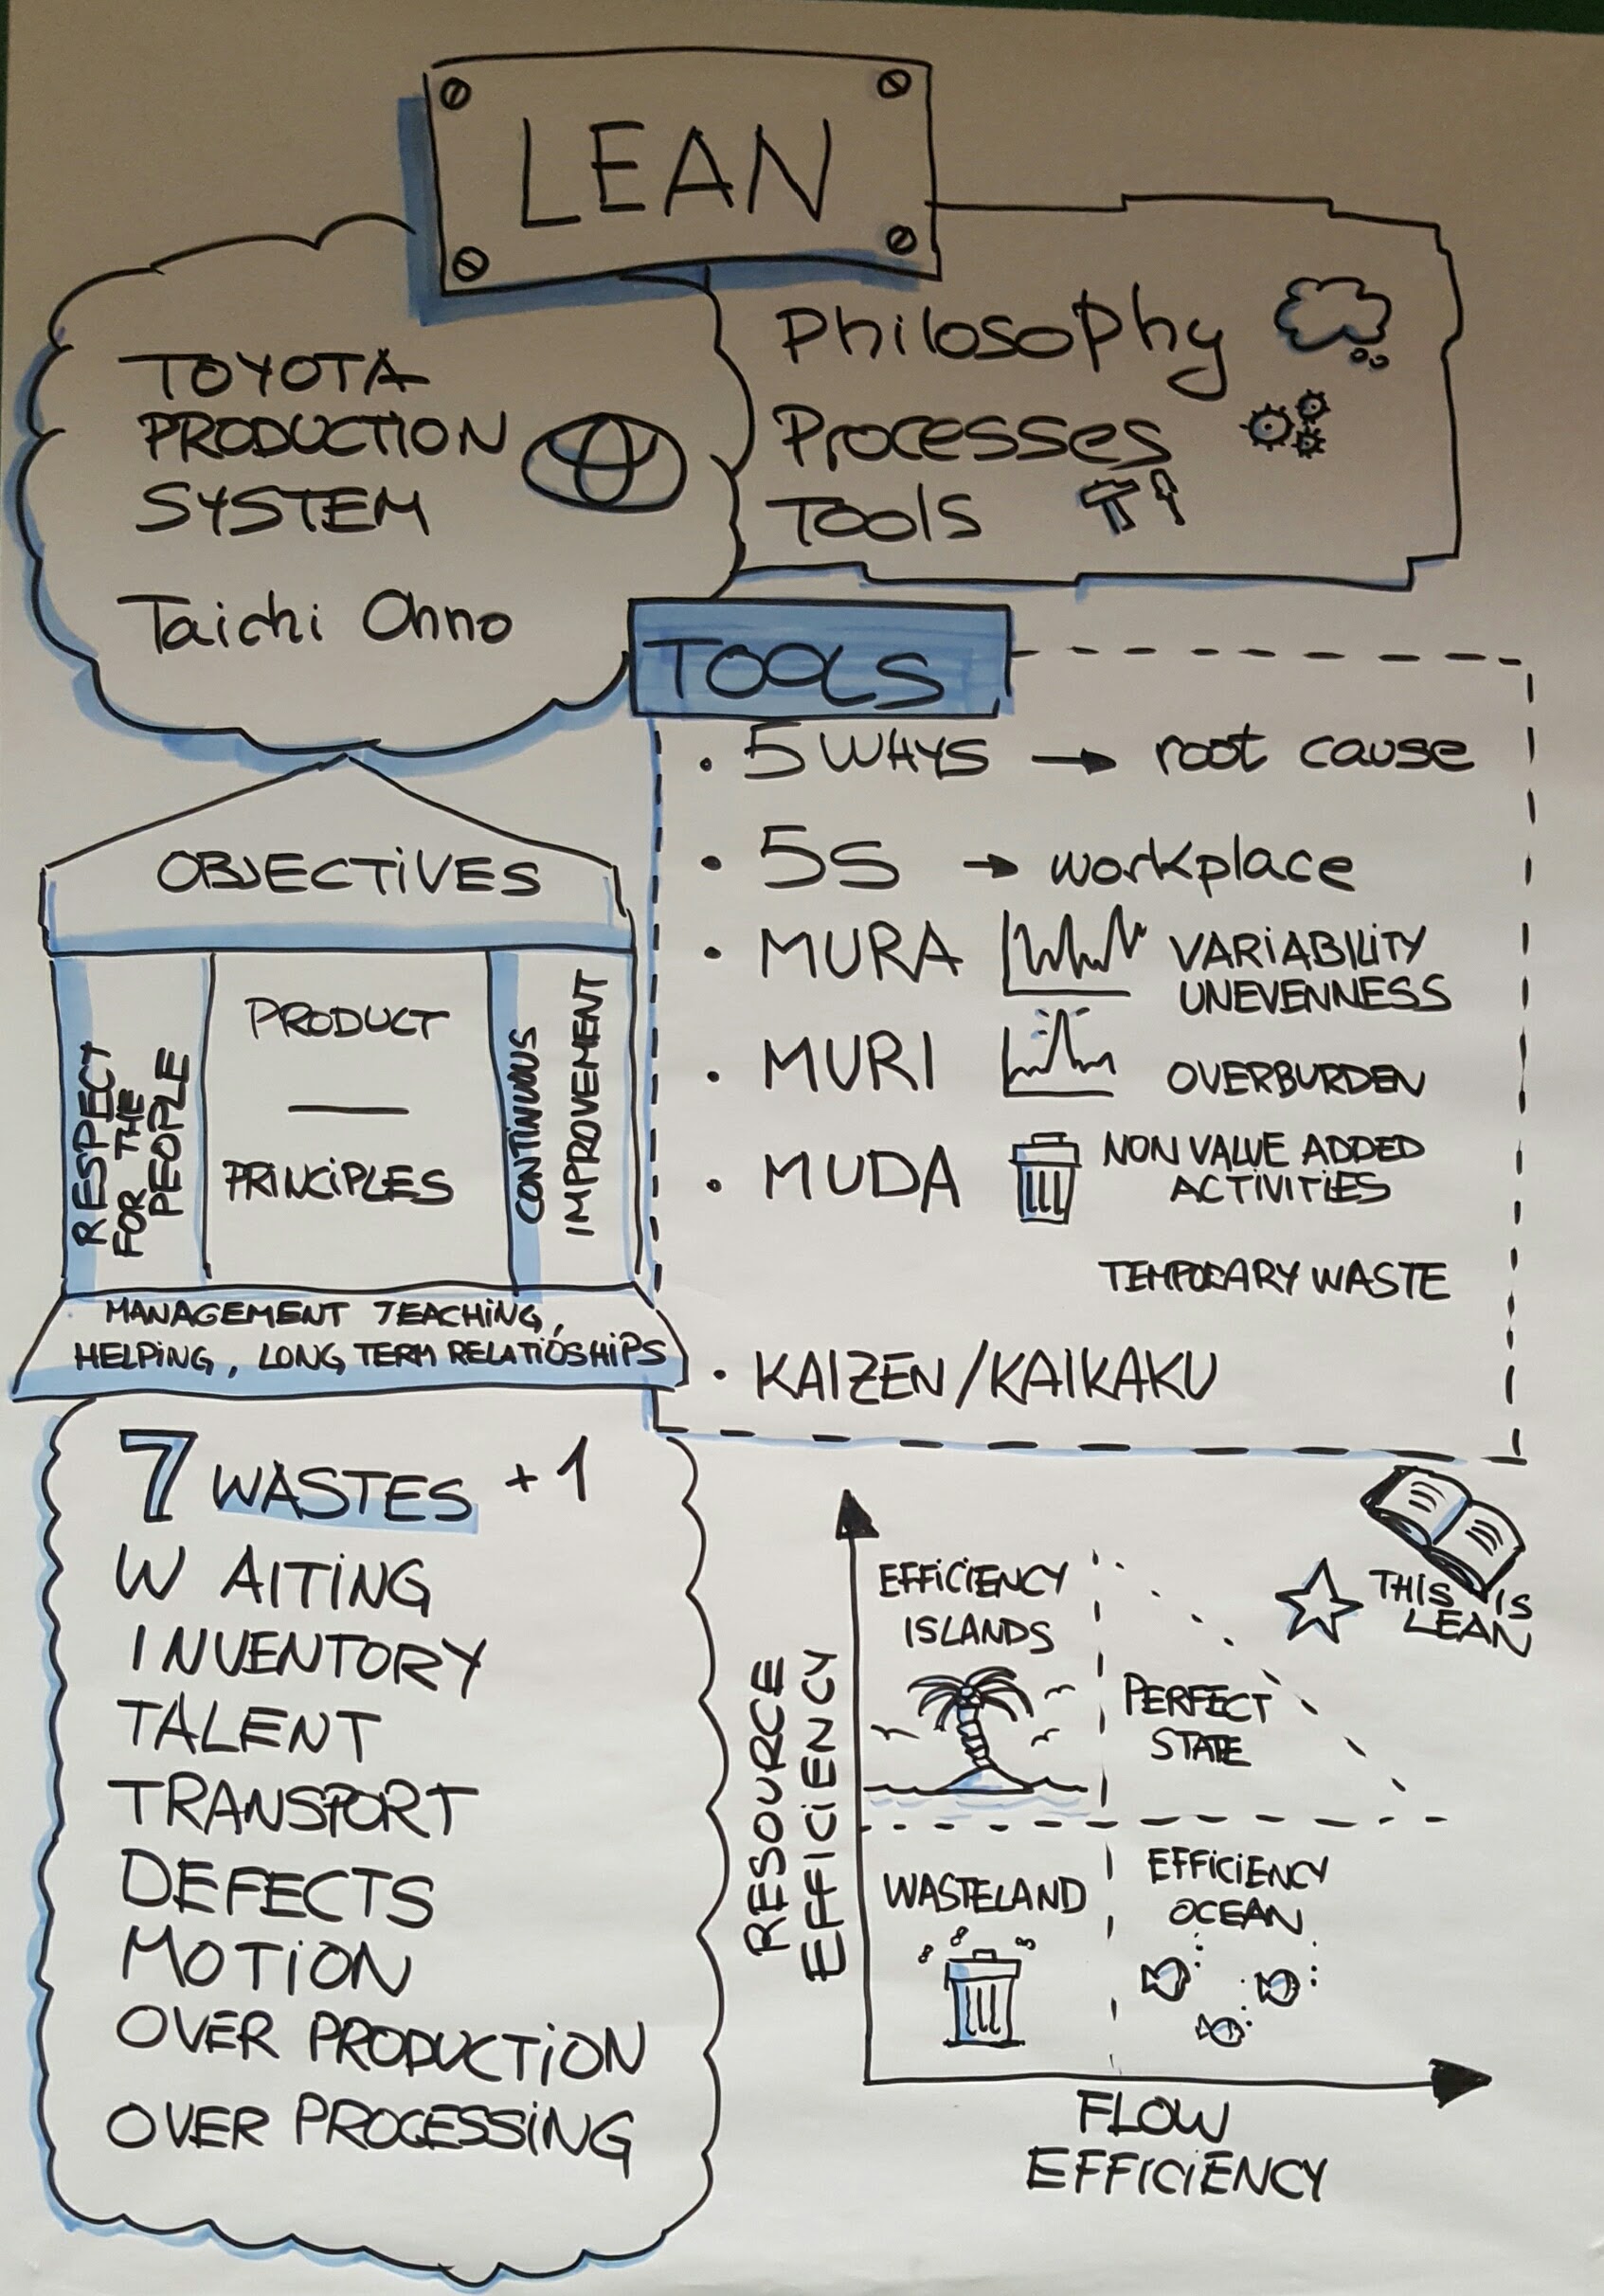 LEAN
TOYOTA
PRODUCTION
SYSTEM
Taichi Ohno
Philosophy
Processes
Tools
TOOLS
. 5 WHYS → root cause
• 5S → workplace
• MURA VARIABILITY
UNEVENNESS
• MURI OVERBURDEN
• MUDA NON VALUE ADDED
ACTIVITIES
TEMPORARY WASTE
• KAIZEN/KAIKAKU
OBJECTIVES
RESPECT
FOR THE
PEOPLE
PRODUCT
PRINCIPLES
CONTINUOUS
IMPROVEMENT
MANAGEMENT TEACHING,
HELPING, LONG TERM RELATIOSHIPS
7 WASTES +1
WAITING
INVENTORY
TALENT
TRANSPORT
DEFECTS
MOTION
OVER PRODUCTION
OVER PROCESSING
RESOURCE
EFFICIENCY
EFFICIENCY
ISLANDS
THIS IS
LEAN
PERFECT
STATE
WASTELAND
EFFICIENCY
OCEAN
FLOW
EFFICIENCY